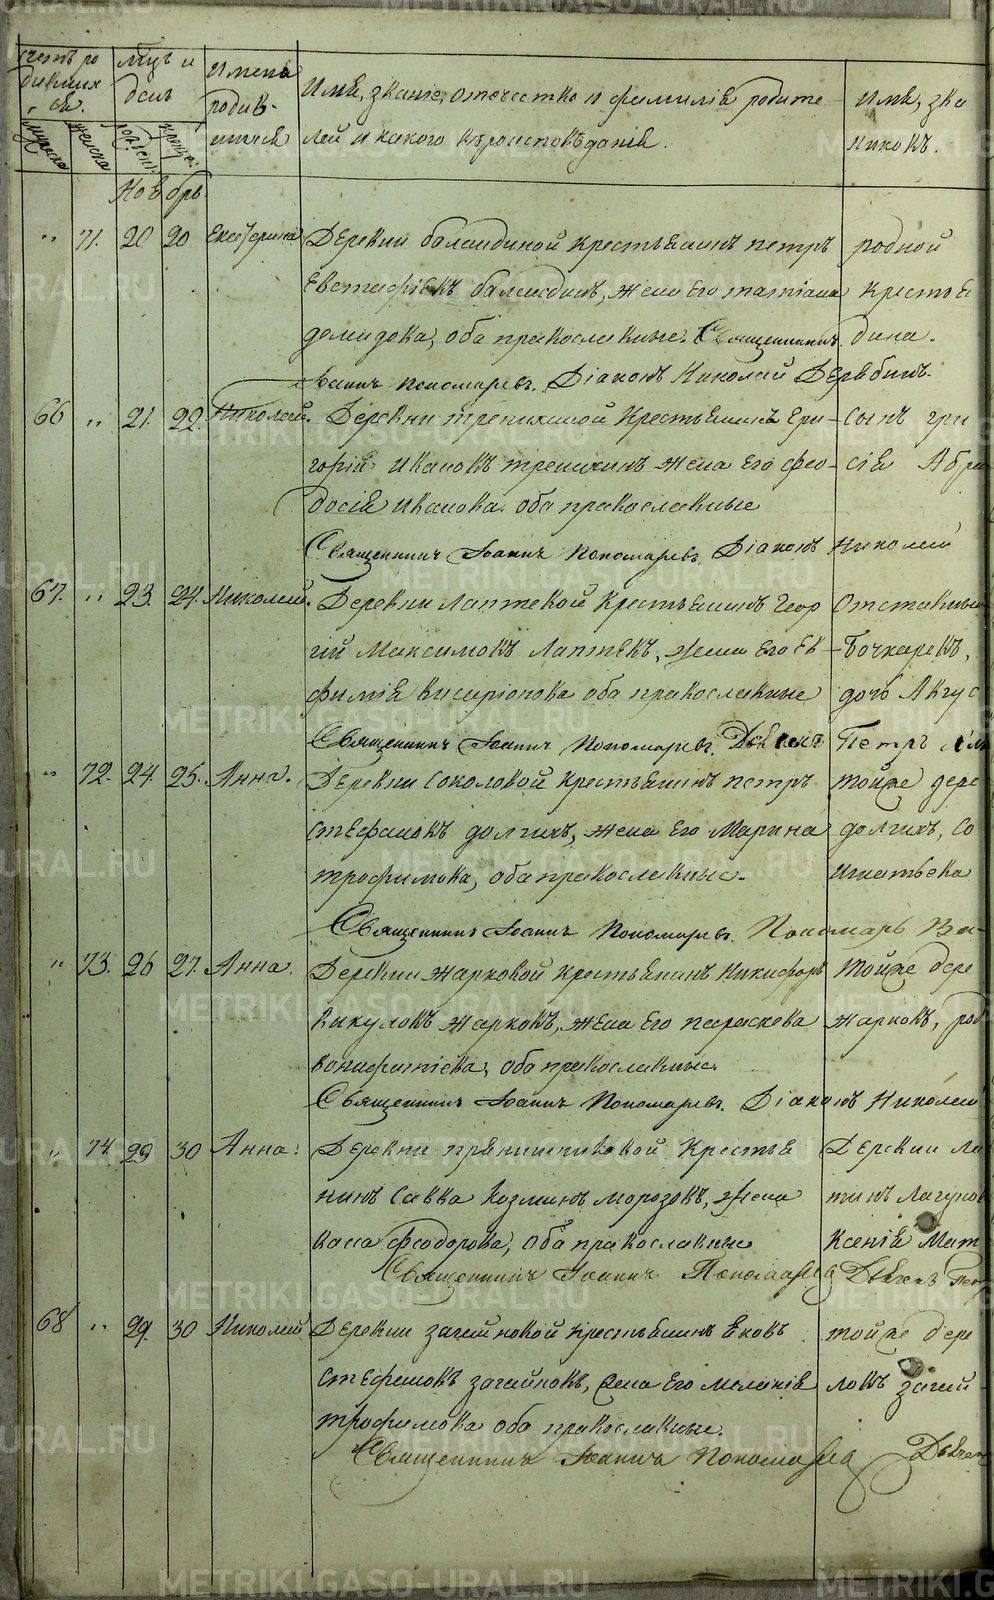 Счетъ ро
дивших
ся.
мужеска
женска
мцъ и
день
рожден
крещ.
имена
родив-
шихся
Имя, званіе, отечество и фамилія родите-
лей и какого вѣроисповѣданія.
Имя, зва
никовъ.
Ноябрь
" 71. 20 20 Екатерина Деревни баландиной крестьянинъ петръ родной
Евстафіевъ баландинъ, жена его татіана крестья
демидова, оба православные. Священникъ дина.
Іоаннъ Пономаревъ. Діаконъ Николай Дерябинъ.
66 " 21. 22. Николай. Деревни трепихиной крестьянинъ гри- сынъ гри
горій ивановъ трепихинъ жена его фео- сія Абра
досія иванова. оба православные
Священникъ Іоаннъ Пономаревъ. Діаконъ Николай
67. " 23. 24. Николай. Деревни лаптевой крестьянинъ геор отставный
гій Максимовъ лаптевъ, жена его ев- Бочкаревъ,
фимія висаріонова оба православные дочь Авгус
Священникъ Іоаннъ Пономаревъ. Дьячекъ Петръ
" 72. 24. 25. Анна. Деревни соколовой крестьянинъ петръ тойже дере
стефановъ долгихъ, жена его Марина долгихъ, со
трофимова, оба православные. игнатьева
Священникъ Іоаннъ Пономаревъ. Пономарь
" 73. 26 27. Анна. Деревни жарковой крестьянинъ никифоръ тойже дере
викуловъ жарковъ, жена его параскева жарковъ, род
вонифатіева, оба православные.
Священникъ Іоаннъ Пономаревъ. Діаконъ Николай
" 74. 29 30 Анна. Деревни прянишниковой крестья Деревни ла
нинъ савва козминъ морозовъ, жена тинъ лагунов
васа феодорова, оба православные Ксенія Мат
Священникъ Іоаннъ Пономаревъ Дьячекъ Пет
68 " 29. 30 Николай Деревни загайновой крестьянинъ яковъ тойже дере
стефановъ загайновъ, жена его меланія ловъ загай
трофимова оба православные.
Священникъ Іоаннъ Пономаревъ Дьячек
METRIKI.GASO-URAL.RU